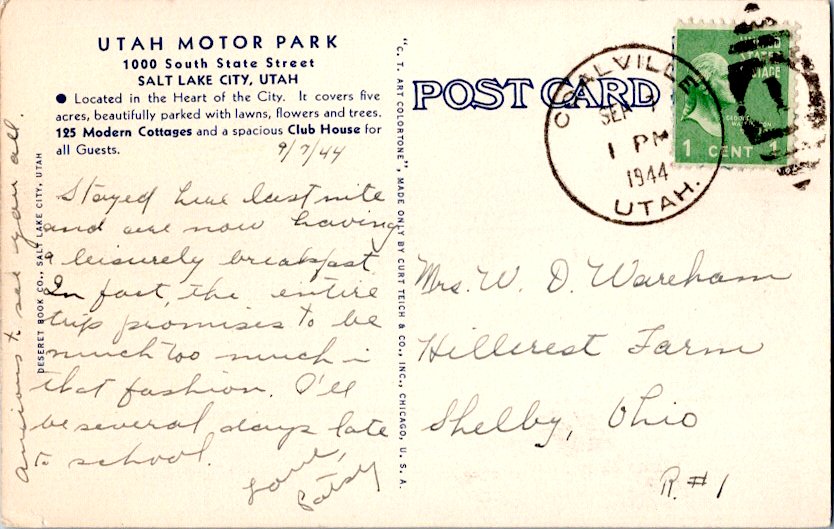 UTAH MOTOR PARK
1000 South State Street
SALT LAKE CITY, UTAH
● Located in the Heart of the City. It covers five
acres, beautifully parked with lawns, flowers and trees.
125 Modern Cottages and a spacious Club House for
all Guests.
9/7/44
Stayed here last nite
and are now having
a leisurely breakfast
In fact, the entire
trip promises to be
much too much in
that fashion. I'll
be several days late
to school.
Love,
Patsy
anxious to see you all.
DESERET BOOK CO., SALT LAKE CITY, UTAH
"C. T. ART COLORTONE", MADE ONLY BY CURT TEICH & CO., INC., CHICAGO, U. S. A.
POST CARD
COALVILLE
SEP 7
1 PM
1944
UTAH.
UNITED
STATES
POSTAGE
1 CENT 1
Mrs. W. D. Wareham
Hillcrest Farm
Shelby, Ohio
R. #1